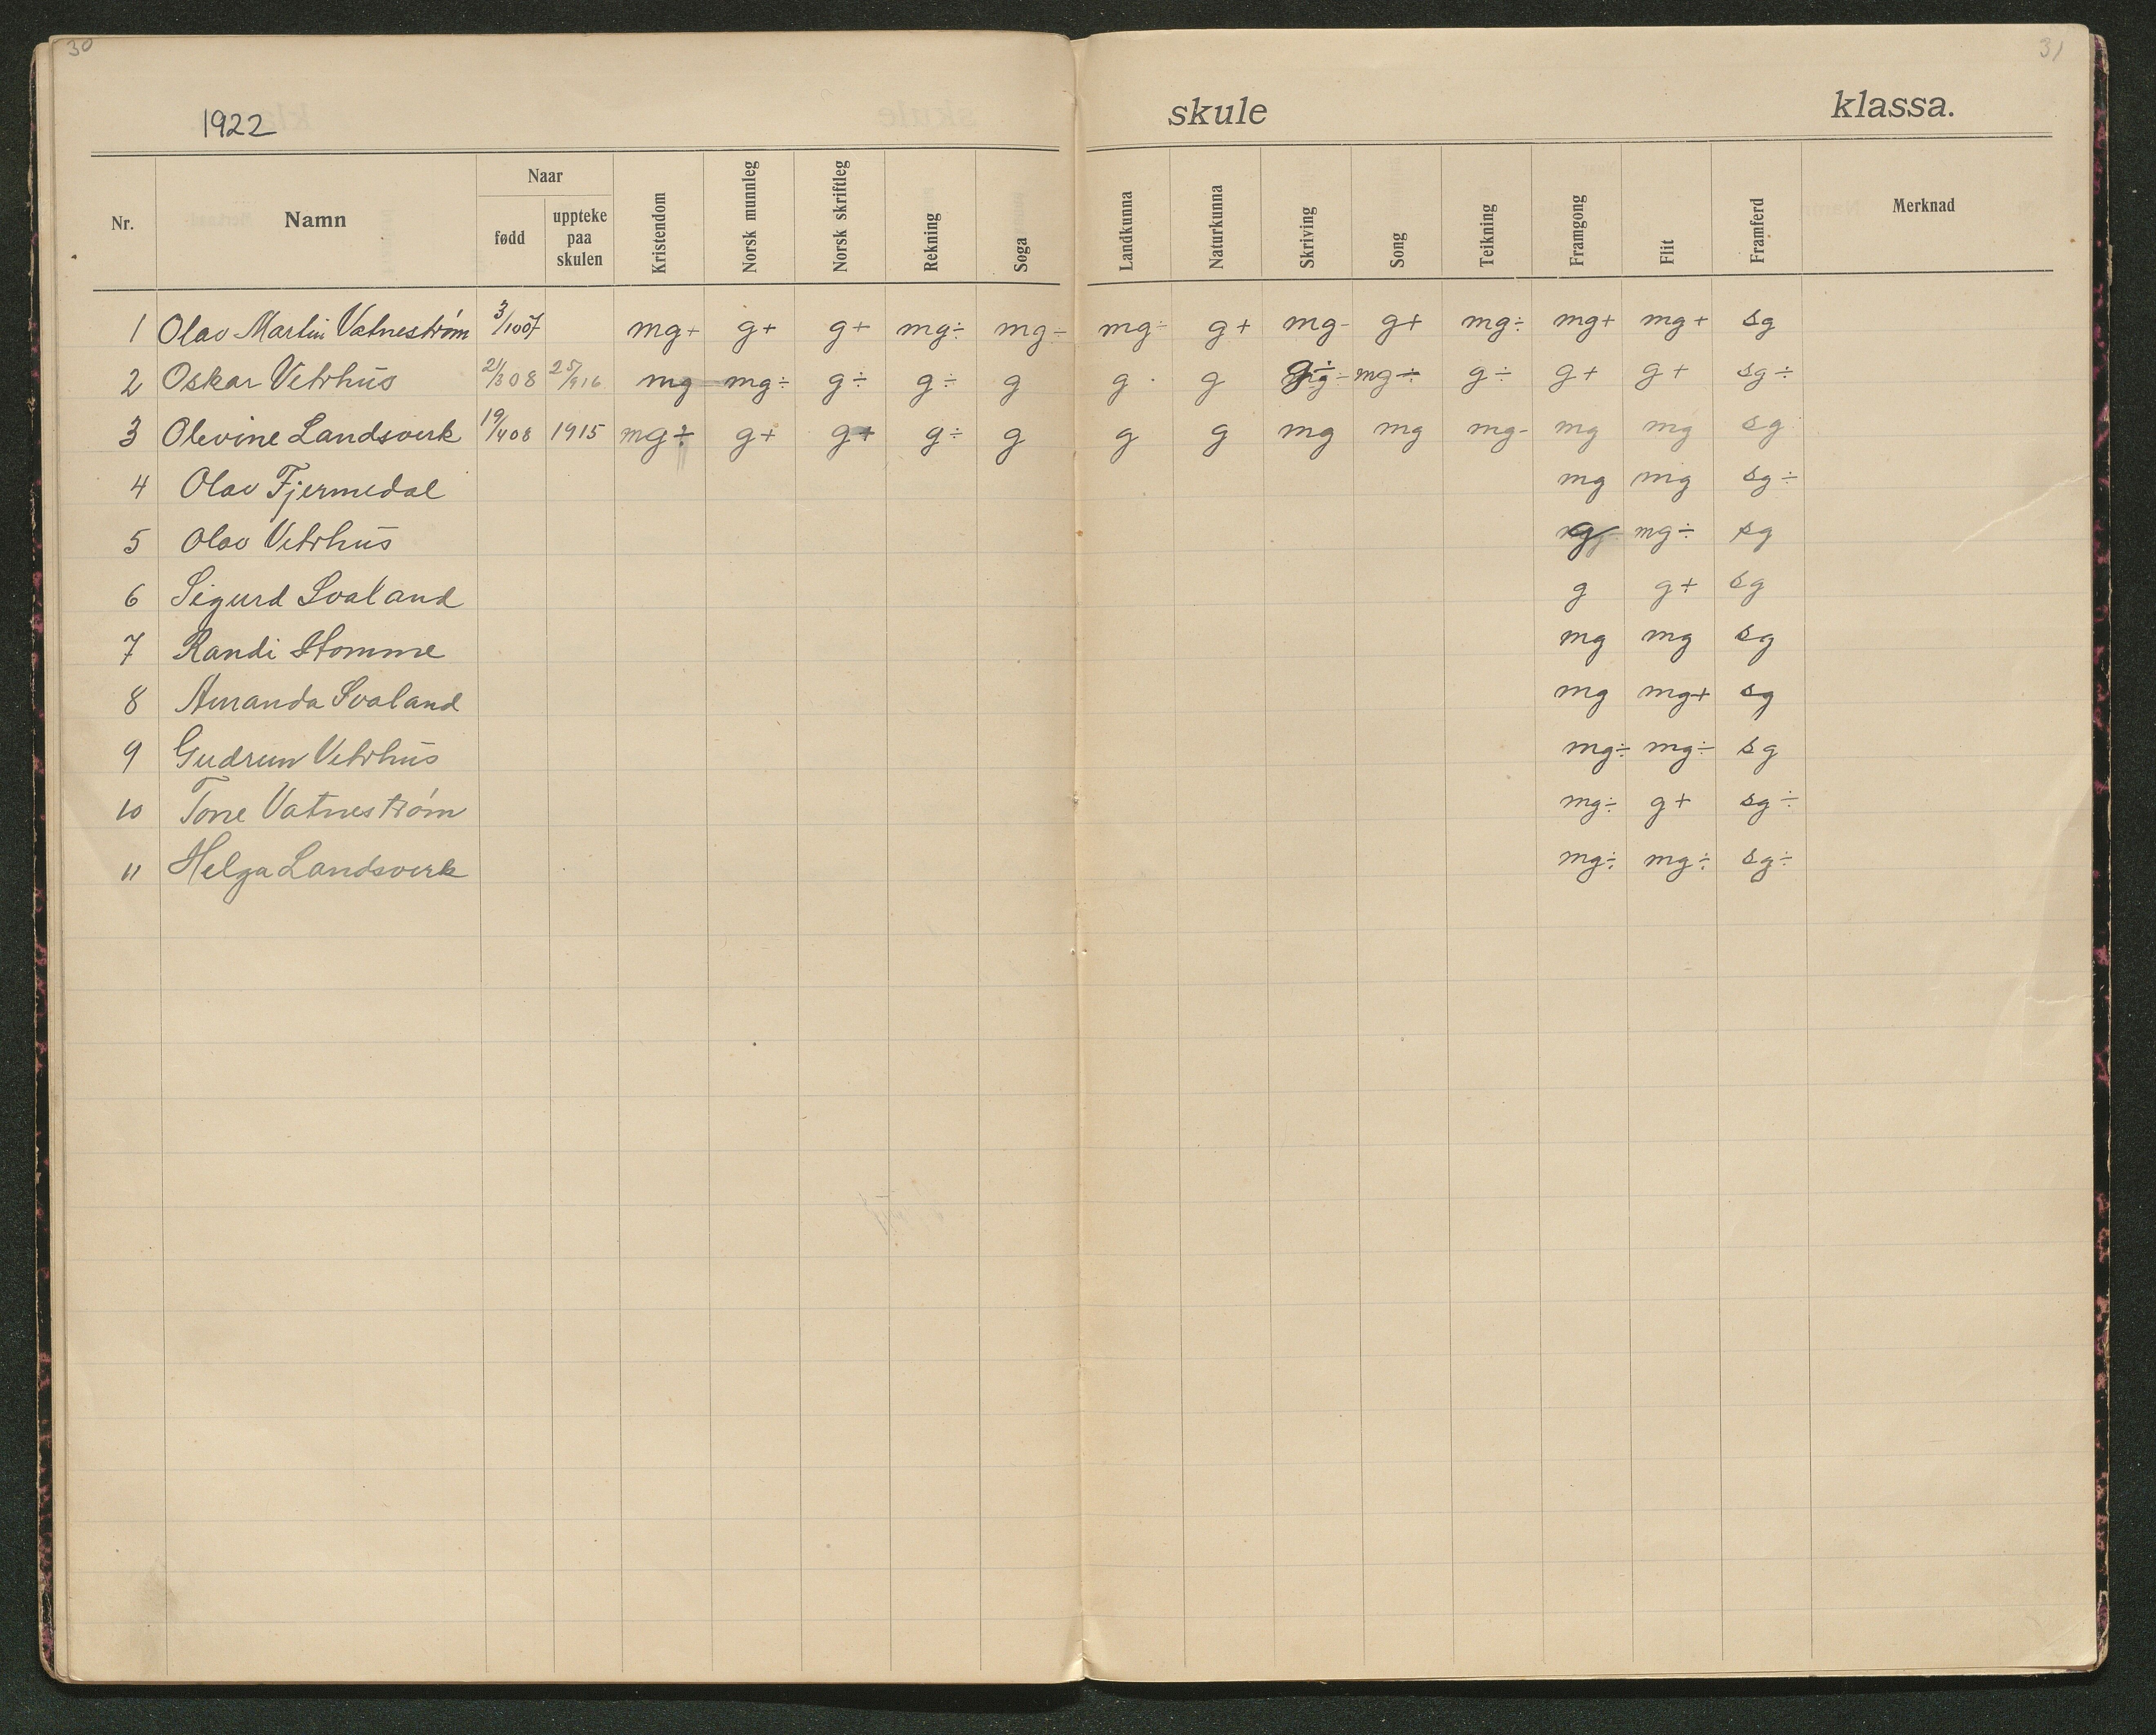 30
31
1922
skule
klassa.
Nr.
Namn
Naar
fødd
uppteke
paa
skulen
Kristendom
Norsk munnleg
Norsk skriftleg
Rekning
Soga
Landkunna
Naturkunna
Skriving
Song
Teikning
Framgong
Flit
Framferd
Merknad
1 Olav Martin Vatnestrøm 3/10 07 mg+ g+ g+ mg÷ mg÷ mg÷ g+ mg- g+ mg÷ mg+ mg+ sg
2 Oskar Vetrhus 21/3 08 25/9 16 mg mg÷ g÷ g÷ g g g g÷ mg÷ g÷ g+ g+ sg÷
3 Olevine Landsverk 19/4 08 1915 mg÷ g+ g+ g÷ g g g mg mg mg- mg mg sg
4 Olav Fjermedal mg mg sg÷
5 Olav Vetrhus g mg÷ sg
6 Sigurd Svaland g g+ sg
7 Randi Stomme mg mg sg
8 Amanda Svaland mg mg+ sg
9 Gudrun Vetrhus mg÷ mg÷ sg
10 Tone Vatnestrøm mg÷ g+ sg÷
11 Helga Landsverk mg÷ mg÷ sg÷